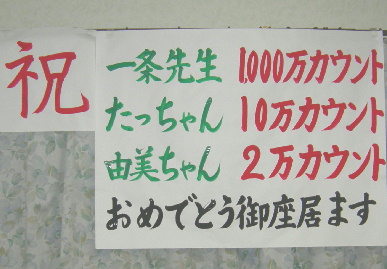 祝
一条先生 1,000万カウント
たっちゃん 10万カウント
由美ちゃん 2万カウント
おめでとう御座居ます